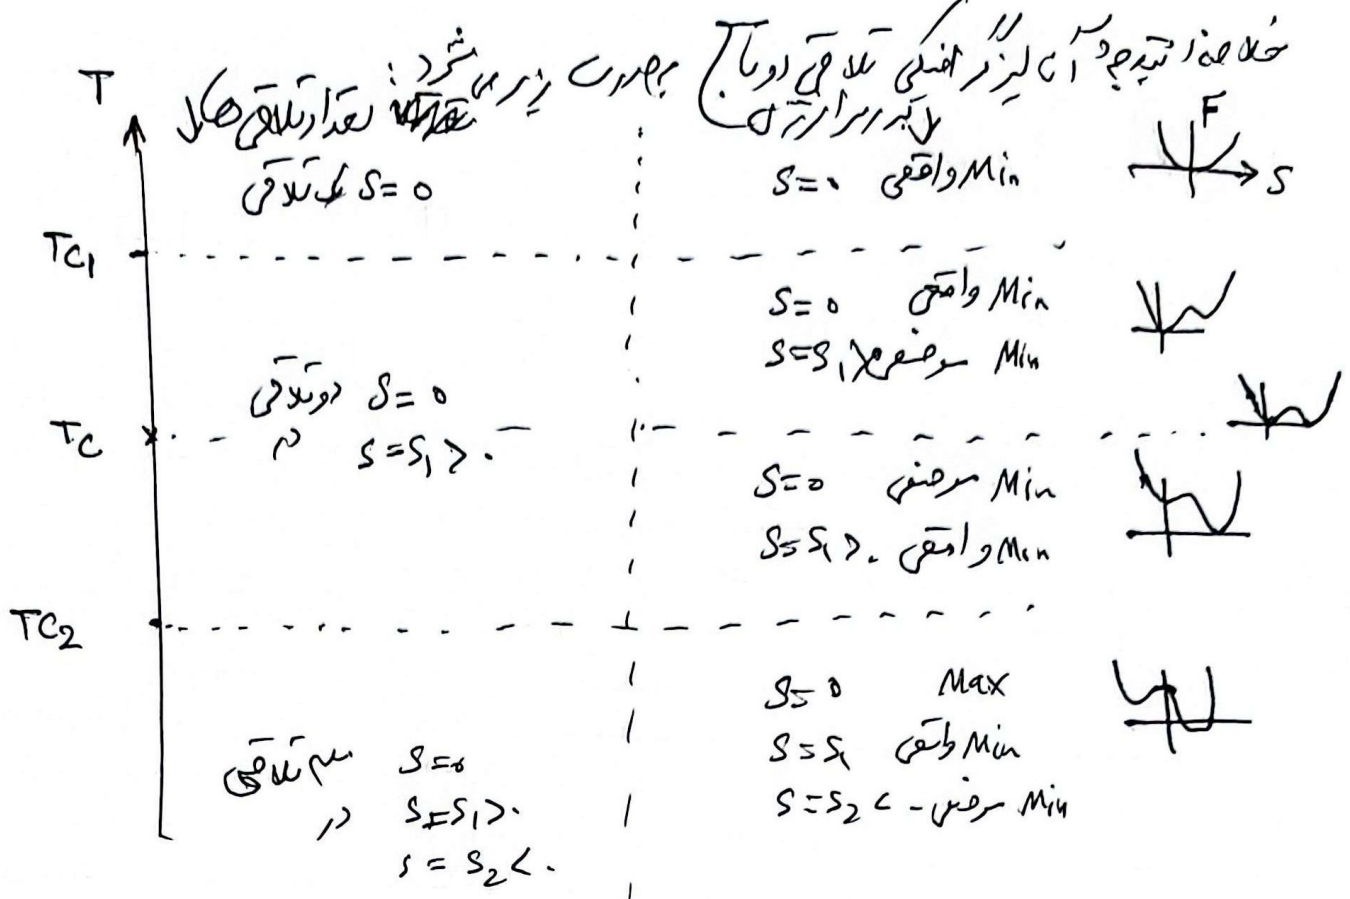 خلاصه نتیجه آنالیز گرافیکی تلاقی دو تابع بصورت زیر می شود: تعداد تلاقی ها
T
F
S
S=0 یک تلاقی
S=0 واقعی Min
TC1
S=0 واقعی Min
S=S1 موضعی Min
دو تلاقی S=0
در S=S1>0
TC
S=0 موضعی Min
S=S1>0 واقعی Min
TC2
S=0 Max
S=S1 واقعی Min
S=S2< موضعی Min
سه تلاقی S=0
در S=S1>0
S=S2<0